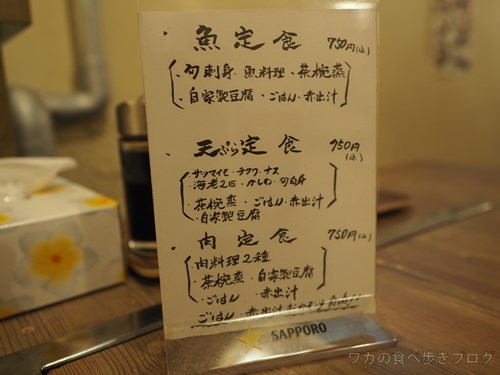 魚定食 750円(込)
・旬刺身・魚料理・茶椀蒸
・自家製豆腐・ごはん・赤出汁
天ぷら定食 750円(込)
・サツマイモ・チクワ・ナス
・海老2匹・かしわ・旬白身
・茶椀蒸・ごはん・赤出汁
・自家製豆腐
肉定食 750円(込)
・肉料理2種
・茶椀蒸・自家製豆腐
・ごはん・赤出汁
ごはん・赤出汁おかわり
SAPPORO
ワカの食べ歩きブログ